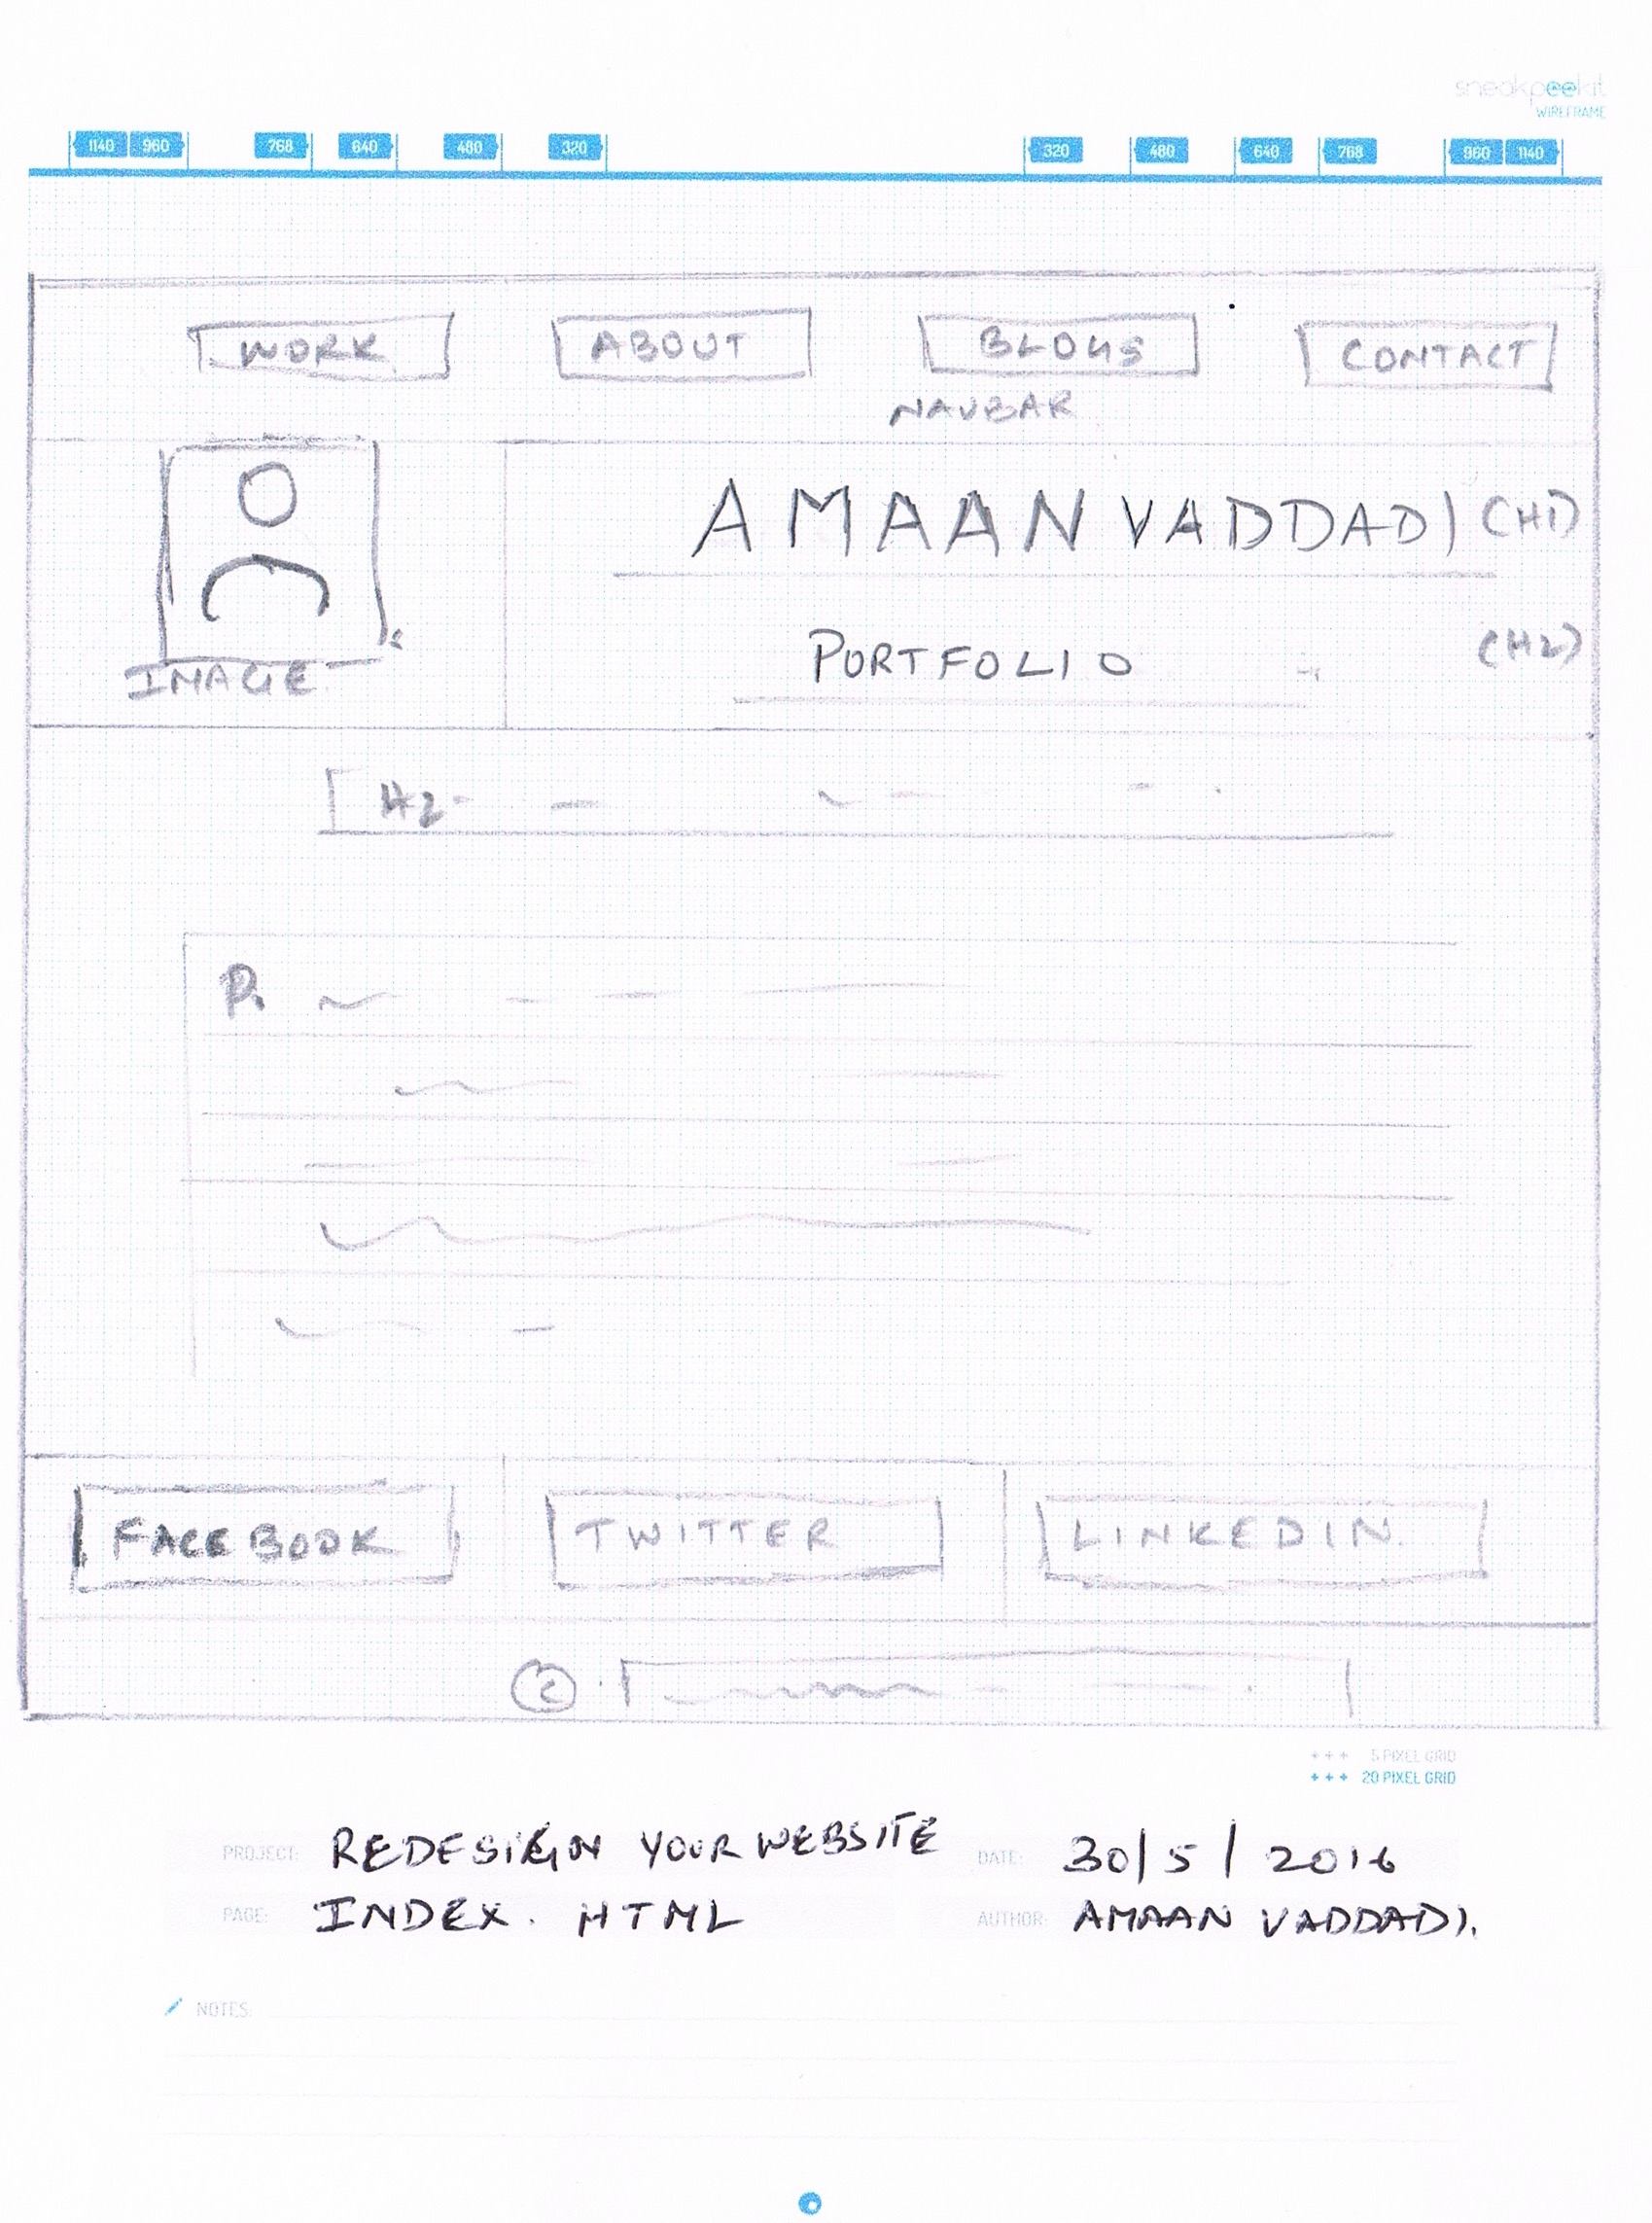 sneakpeekit
WIREFRAME
1140 960 768 640 480 320 320 480 640 768 960 1140
WORK ABOUT BLOGS CONTACT
NAVBAR
AMAAN VADDADI (H1)
PORTFOLIO (H2)
IMAGE
H2
P.
FACEBOOK TWITTER LINKEDIN
©
+++ 5 PIXEL GRID
+++ 20 PIXEL GRID
PROJECT: REDESIGN YOUR WEBSITE DATE: 30/5/2016
PAGE: INDEX.HTML AUTHOR: AMAAN VADDADI.
NOTES: